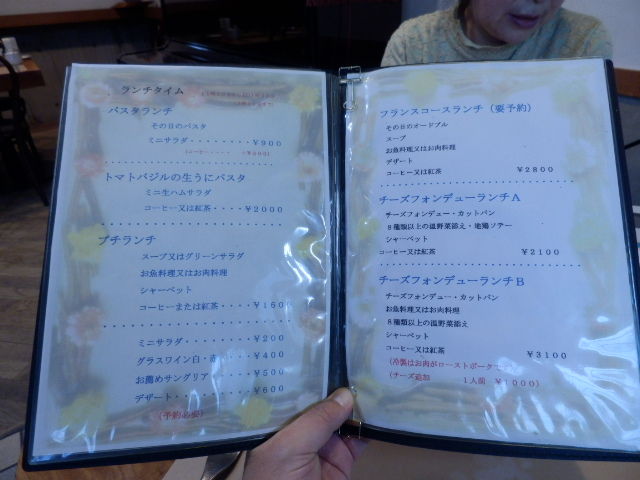 ランチタイム
パスタランチ
その日のパスタ
ミニサラダ・・・・・・・・¥900
トマトバジルの生うにパスタ
ミニ生ハムサラダ
コーヒー又は紅茶・・・・¥2000
プチランチ
スープ又はグリーンサラダ
お魚料理又はお肉料理
シャーベット
コーヒーまたは紅茶・・・・¥1600
ミニサラダ・・・・・・・¥200
グラスワイン白・赤・・・・¥400
お薦めサングリア・・・・¥500
デザート・・・・・・・・¥600
(予約必要)
フランスコースランチ(要予約)
その日のオードブル
スープ
お魚料理又はお肉料理
デザート
コーヒー又は紅茶 ¥2800
チーズフォンデューランチA
チーズフォンデュー・カットパン
8種類以上の温野菜添え・地鶏ソテー
シャーベット
コーヒー又は紅茶 ¥2100
チーズフォンデューランチB
チーズフォンデュー・カットパン
お魚料理又はお肉料理
8種類以上の温野菜添え
シャーベット
コーヒー又は紅茶 ¥3100
はお肉がローストポーク
(チーズ追加 1人前 ¥1000)